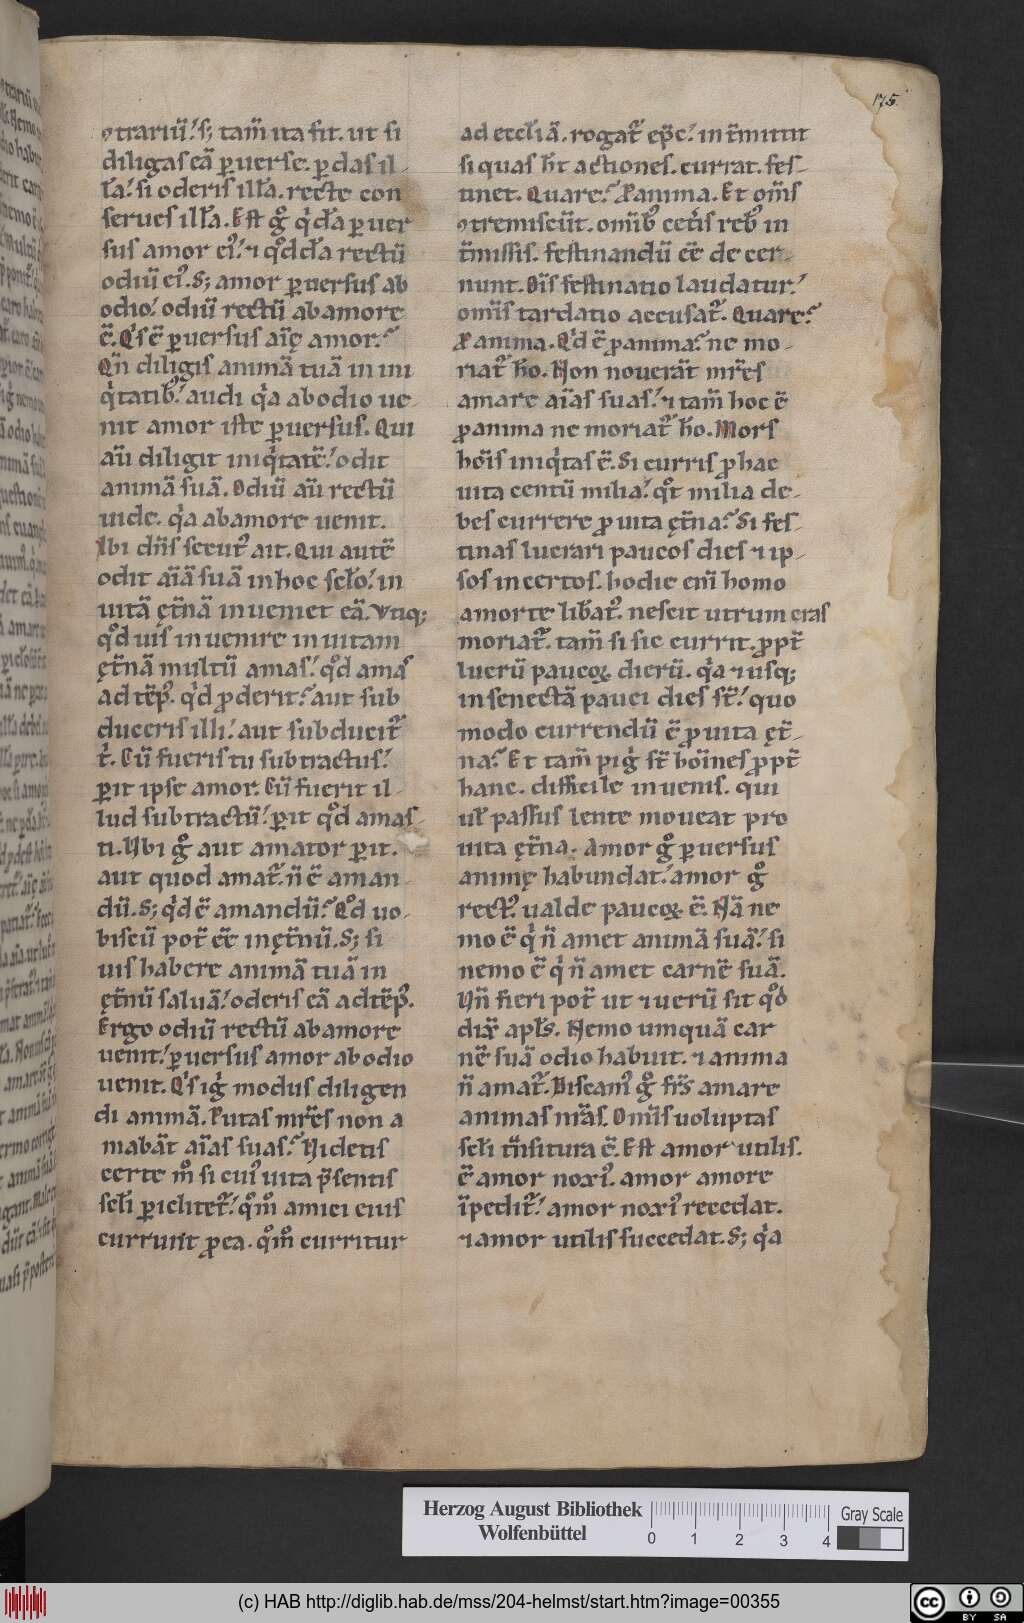 175.
ꝯtrariū. s; tam̄ ita fit. ut si
diligas eā ꝑuerse. ꝑdas il-
lā. si oderis illā. recte con
serues illā. Est gͦ q̇dā ꝑuer
sus amor ei᷒. ⁊ qͦddā rectū
odiū ei᷒. S; amor ꝑuersus ab
odio. odiū rectū ab amore
ē. Q̇s ē ꝑuersus aīę amor?
Qn̄ diligis animā tuā in ini
q̇tatib᷒. audi q̇a ab odio ue-
nit amor iste ꝑuersus. Qui
au̅ diligit iniq̇tatē. odit
animā suā. Odiū au̅ rectū
uide. q̇a ab amore uenit.
Ibi dn̄s secut᷒ ait. Qui autē
odit aīā suā in hoc sclo. in
uitā ęt̄nā inueniet eā. Vtiq;
qͦd uis inuenire in uitam
ęt̄nā multū amas. qͦd amas
ad tēp᷒. q̇d ꝓderit? aut sub
duceris illi. aut subducit᷑
ṫ. Cū fueris tu subtractus.
ꝑit ipse amor. Cū fuerit il-
lud subtractū. ꝑit qͦd amas-
ti. Ubi gͦ aut amator ꝑit.
aut quod amat᷑. n̄ ē aman-
dū. S; q̇d ē amandū? Qͦd uo-
biscū pot̄ eē in ęt̄nū. S; si
uis habere animā tuā in
ęt̄nū saluā. oderis eā ad tēp᷒.
Ergo odiū rectū ab amore
uenit. ꝑuersus amor ab odio
uenit. Q̇s iġ modus diligen
di animā. Putas mr̄es non a
mabāt aīas suas? Uidetis
certe m̊ si cui᷒ uita p̄sentis
scli ꝑiclitet᷑. qͦm̊ amici eius
currunt ꝓ ea. qͦm̊ curritur
ad eccliā. rogat᷑ ep̄c. int̄mittit
si quas h̄t actiones. currat. fes-
tinet. Quare? Ꝓ anima. Et om̄s
ꝯtremiscūt. omīb᷒ cet̄is reb᷒ in
t̄missis. festinandū eē decer-
nunt. Oīs festinatio laudatur.
omīs tardatio accusat᷑. Quare?
Ꝓ anima. Q̇d ē ꝓ anima? ne mo-
riat᷑ hō. Non nouerāt mr̄es
amare aīas suas. ⁊ tam̄ hoc ē
ꝓ anima ne moriat᷑ hō. Mors
hoīs iniq̇tas ē. Si curris ꝓ hac
uita centū milia. qͦt milia de-
bes currere ꝓ uita ęt̄na? Si fes-
tinas lucrari paucos dies ⁊ ip-
sos incertos. hodie eni̅ homo
a morte libat᷒. nescit utrum cras
moriat᷑. tam̄ si sic currit. ꝓpt̄
lucrū paucoꝝ dierū. q̇a ⁊ usq;
in senectā pauci dies st̄. quo
modo currendū ē ꝓ uita ęt̄-
na? Et tam̄ piġ st̄ hoīnes ꝓpt̄
hanc. difficile inuenis. qui
ul̄ passus lente moueat pro
uita ęt̄na. Amor gͦ ꝑuersus
animę habundat. amor gͦ
rect᷒ ualde paucoꝝ ē. Nā ne
mo ē q̇ n̄ amet animā suā. si
nemo ē q̇ n̄ amet carnē suā.
Un̄ fieri pot̄ ut ⁊ uerū sit qͦd
dix̄ apl̄s. Nemo umquā car
nē suā odio habuit. ⁊ anima
n̄ amat᷑. Discam᷒ gͦ fr̄s amare
animas nr̄as. Om̄is uoluptas
scli t̄nsitura ē. Est amor utilis.
ē amor noxi᷒. amor amore
īpedit᷑. amor noxi᷒ recedat.
⁊ amor utilis succedat. S; q̇a
Herzog August Bibliothek
Wolfenbüttel
0 1 2 3 4
Gray Scale
(c) HAB http://diglib.hab.de/mss/204-helmst/start.htm?image=00355
cc BY SA